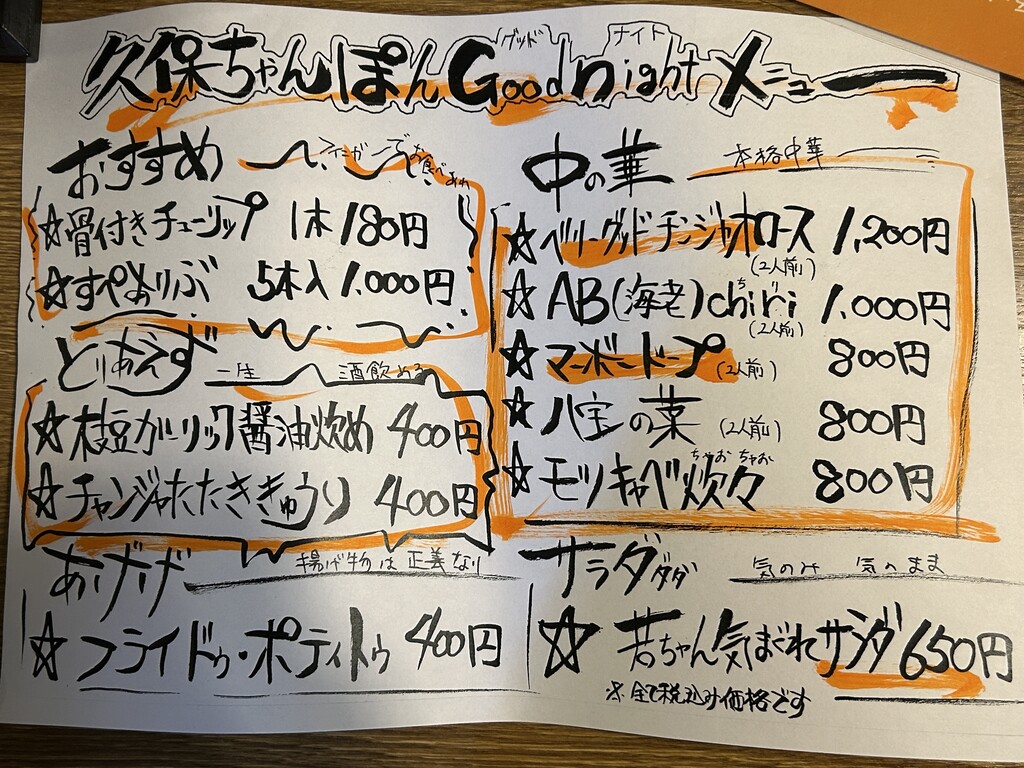 久保ちゃんぽんGood nightメニュー
グッド ナイト
おすすめ
☆骨付きチューリップ 1本 180円
☆すぺありぶ 5本入 1,000円
とりあえず 一生 酒飲める
☆枝豆ガーリック醤油炒め 400円
☆チャンジャたたききゅうり 400円
あげげ 揚げ物は正義なり
☆フライドゥ・ポティトゥ 400円
中の華 本格中華
☆ベリーグッドチンジャオロース 1,200円
(2人前)
☆AB(海老)chiri 1,000円
ち り
(2人前)
☆マーボードープ (2人前) 800円
☆八宝の菜 (2人前) 800円
ちゃお ちゃお
☆モツキャベ炒々 800円
サラダダダ 気のみ 気のまま
☆若ちゃん気まぐれサラダ 650円
※全て税込み価格です